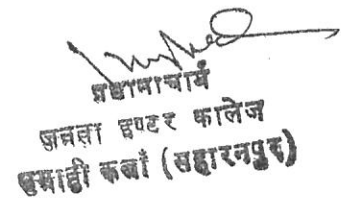 प्रधानाचार्य
जनता इण्टर कालेज
कलां (सहारनपुर)